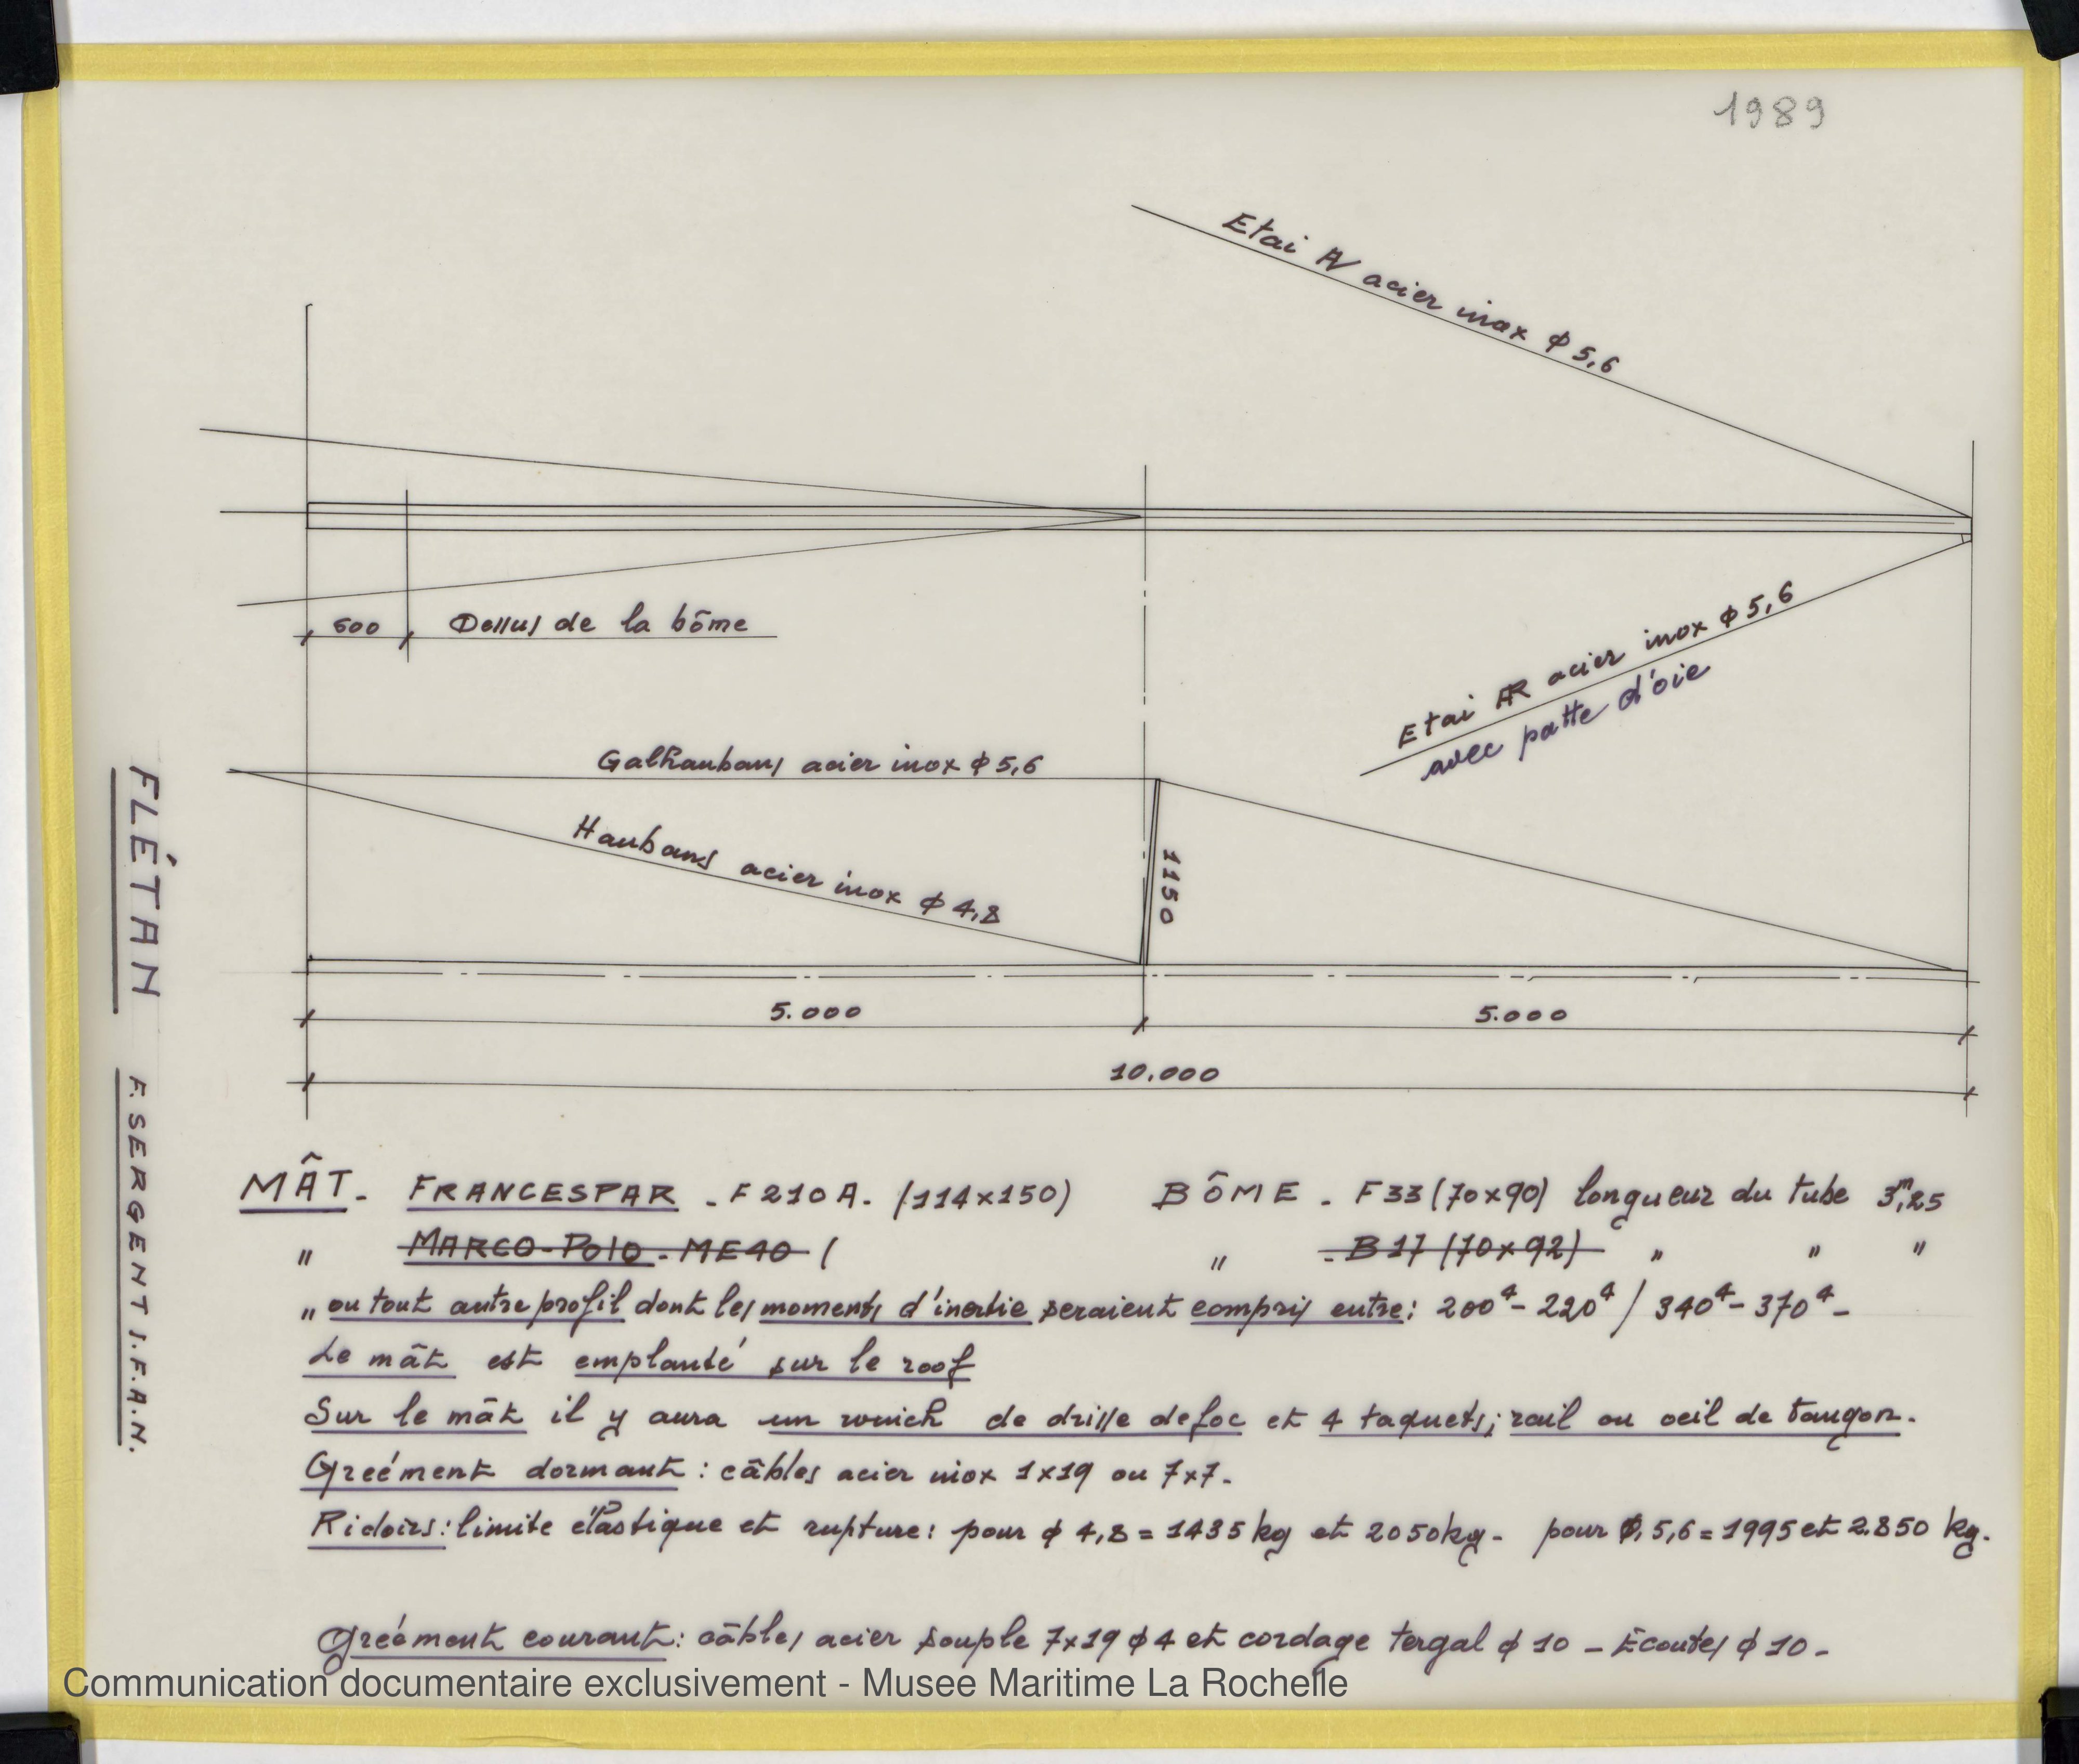 1989
Etai AV acier inox ϕ 5,6
600 Dessus de la bôme
Etai AR acier inox ϕ 5,6
avec patte d'oie
Galhaubans acier inox ϕ 5,6
Haubans acier inox ϕ 4,8
1150
5.000 5.000
10.000
FLÉTAN F. SERGENT I.F.A.N.
MÂT - FRANCESPAR - F210A. (114x150) BÔME - F33 (70x90) longueur du tube 3m,25
" MARCO-POLO - ME40 ( " - B17 (70x92) " " "
" ou tout autre profil dont les moments d'inertie seraient compris entre: 200⁴ - 220⁴ / 340⁴ - 370⁴ -
Le mât est emplanté sur le roof
Sur le mât il y aura un winch de drisse de foc et 4 taquets; rail ou oeil de tangon.
Gréément dormant : câbles acier inox 1x19 ou 7x7.
Ridoirs: limite élastique et rupture: pour ϕ 4,8 = 1435 kg et 2050 kg - pour ϕ 5,6 = 1995 et 2.850 kg.
Gréément courant: câbles acier souple 7x19 ϕ 4 et cordage tergal ϕ 10 - Écoutes ϕ 10 -
Communication documentaire exclusivement - Musee Maritime La Rochelle